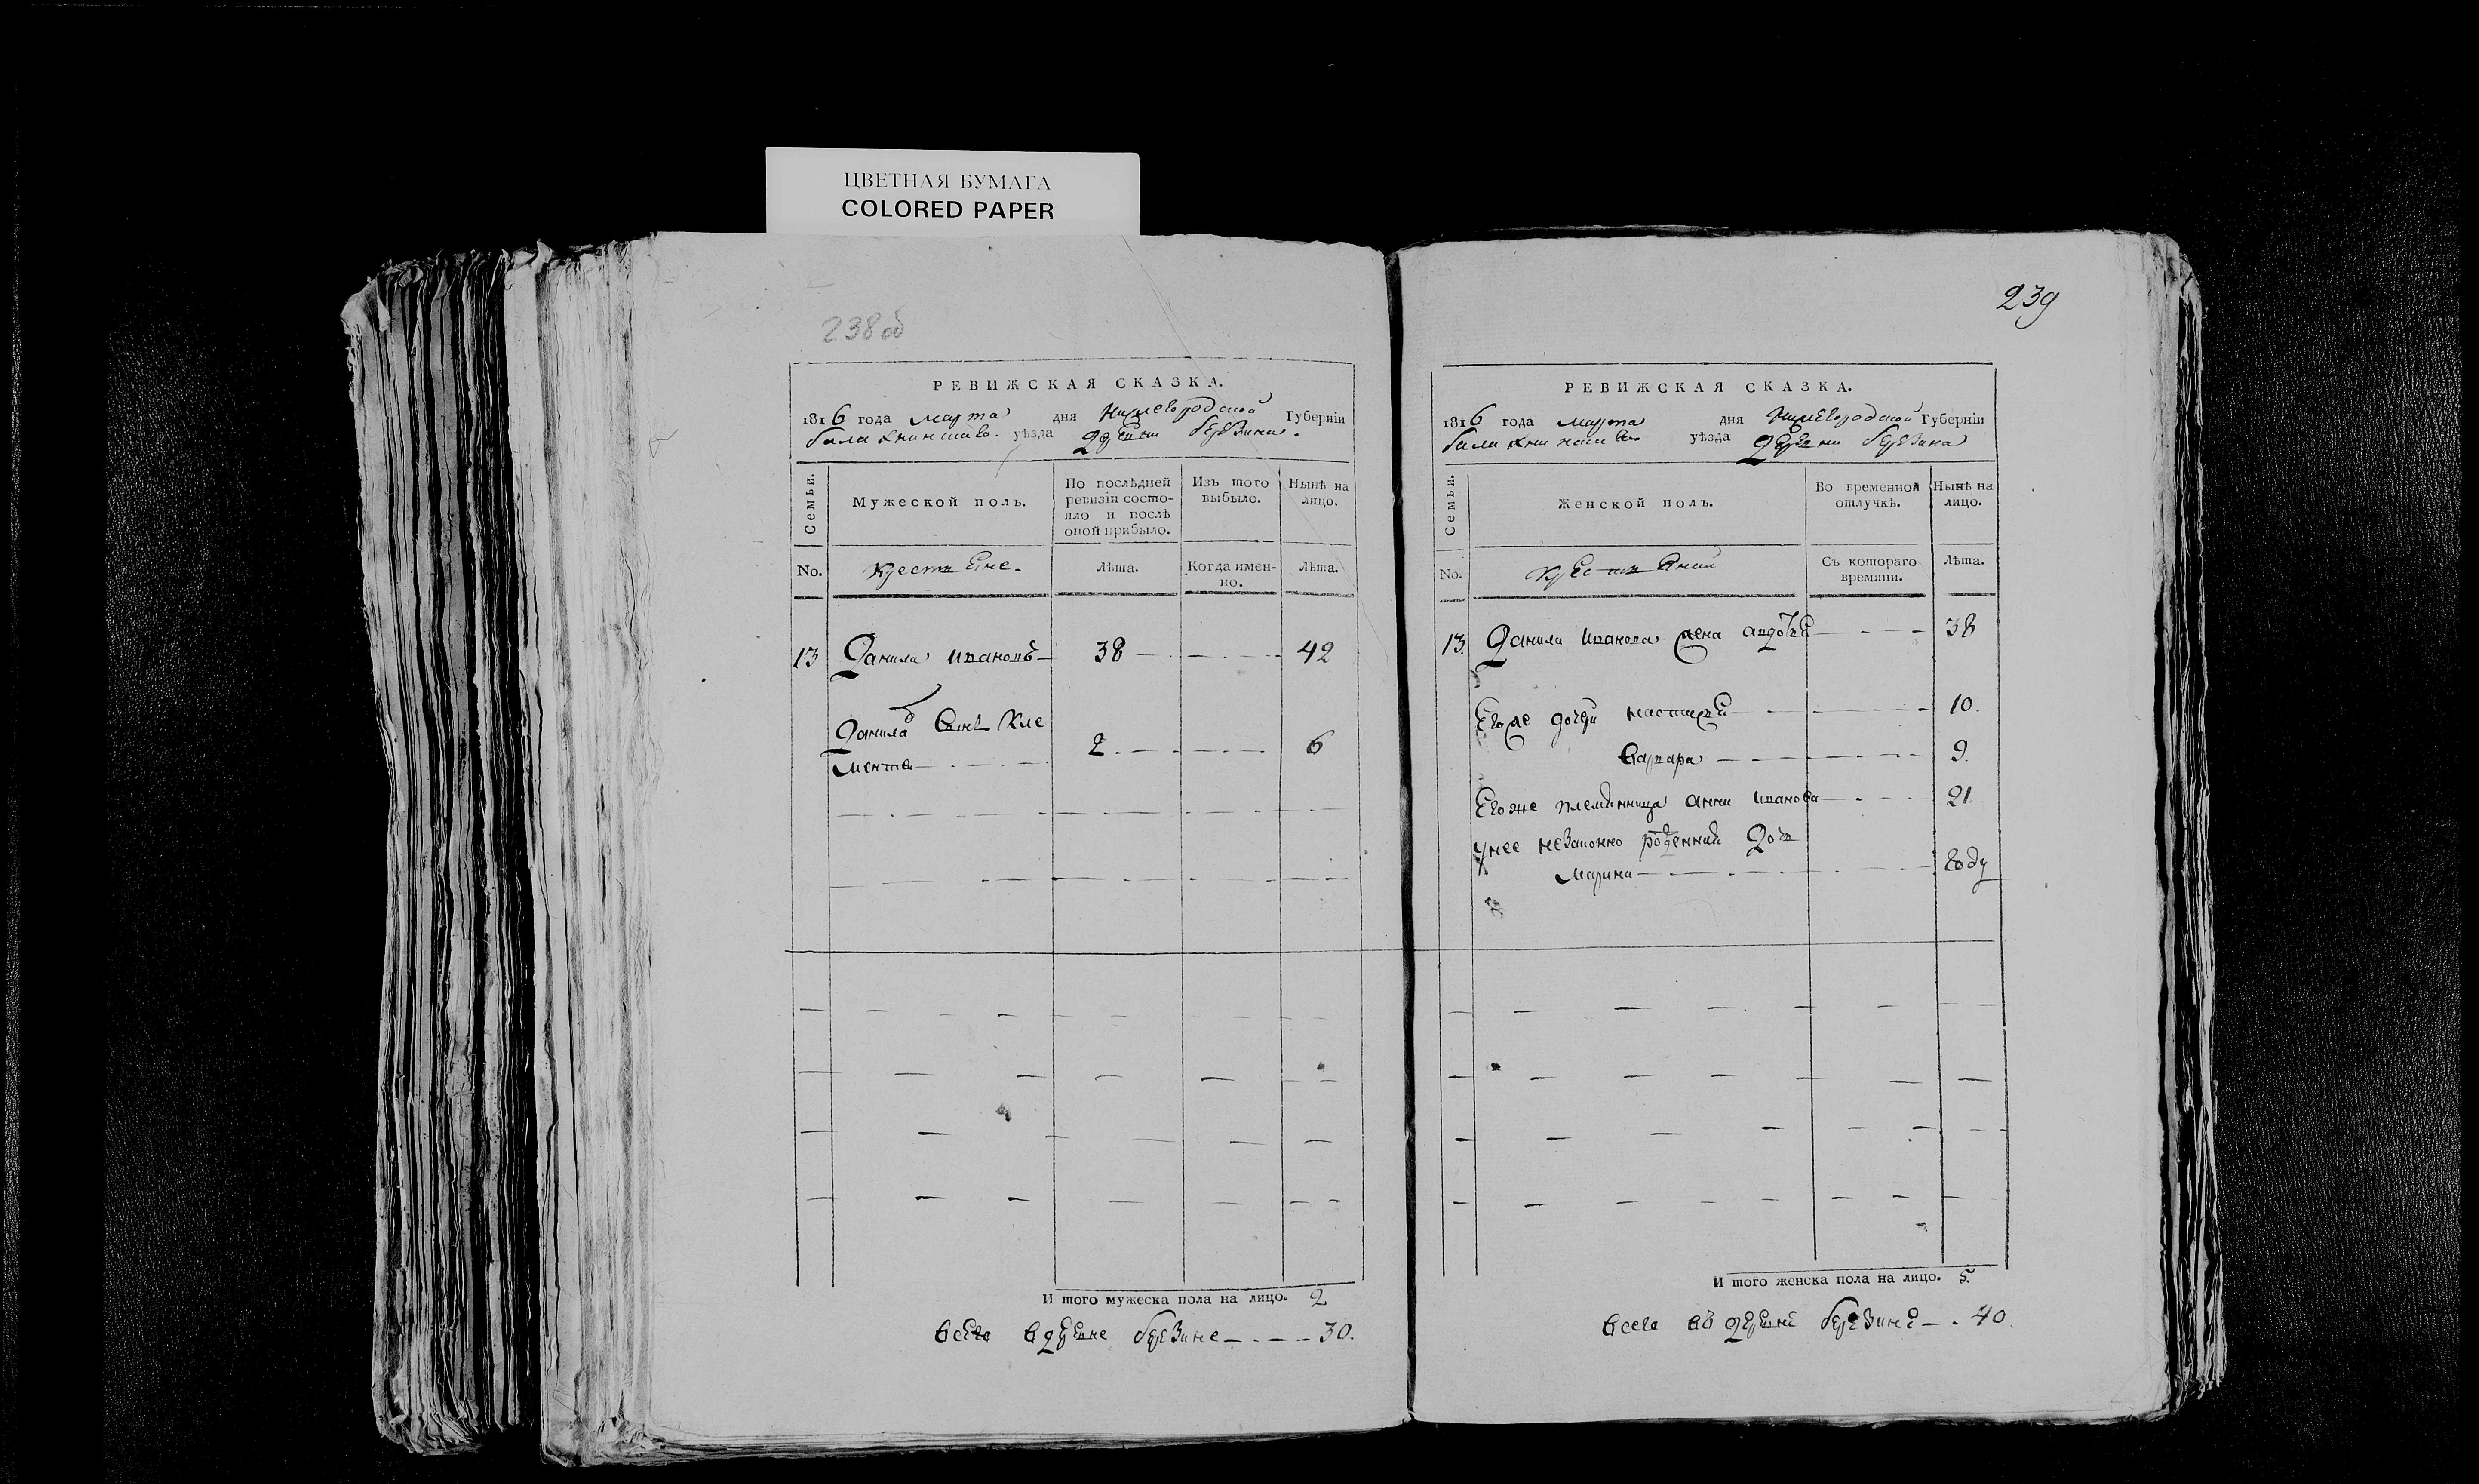 ЦВЕТНАЯ БУМАГА
COLORED PAPER
238 об
РЕВИЖСКАЯ СКАЗКА.
1816 года марта дня нижегородской Губерніи
балахнинскаго уѣзда деревни березина.
Семьи. Мужеской полъ. По послѣдней ревизіи состояло и послѣ оной прибыло. Изъ того выбыло. Нынѣ на лицо.
No. крестьяне. Лѣта. Когда именно. Лѣта.
13 Данила ивановъ 38 42
Данила сынъ Кле
ментей 2 6
И того мужеска пола на лицо. 2
всего в деревне березине 30.
239
РЕВИЖСКАЯ СКАЗКА.
1816 года марта дня нижегородской Губерніи
балахнинскаго уѣзда деревни березина
Семьи. Женской полъ. Во временной отлучкѣ. Нынѣ на лицо.
No. Съ котораго времяни. Лѣта.
13. Данила иванова жена авдотья 38
Егоже дочери настасья 10.
варвара 9.
Егоже племянница анна иванова 21.
унее незаконно рожденная дочь
марина году
И того женска пола на лицо. 5.
всего въ деревне березине 40.